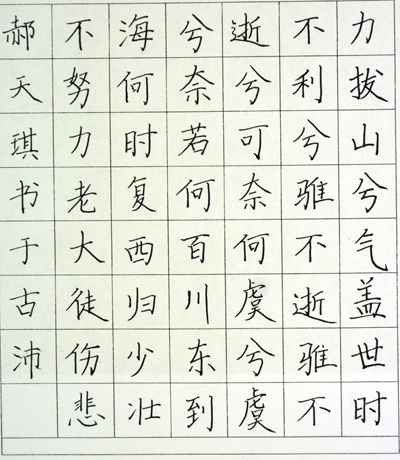 力拔山兮气盖世时
不利兮骓不逝骓不
逝兮可奈何虞兮虞
兮奈若何百川东到
海何时复西归少壮
不努力老大徒伤悲
郝天琪书于古沛